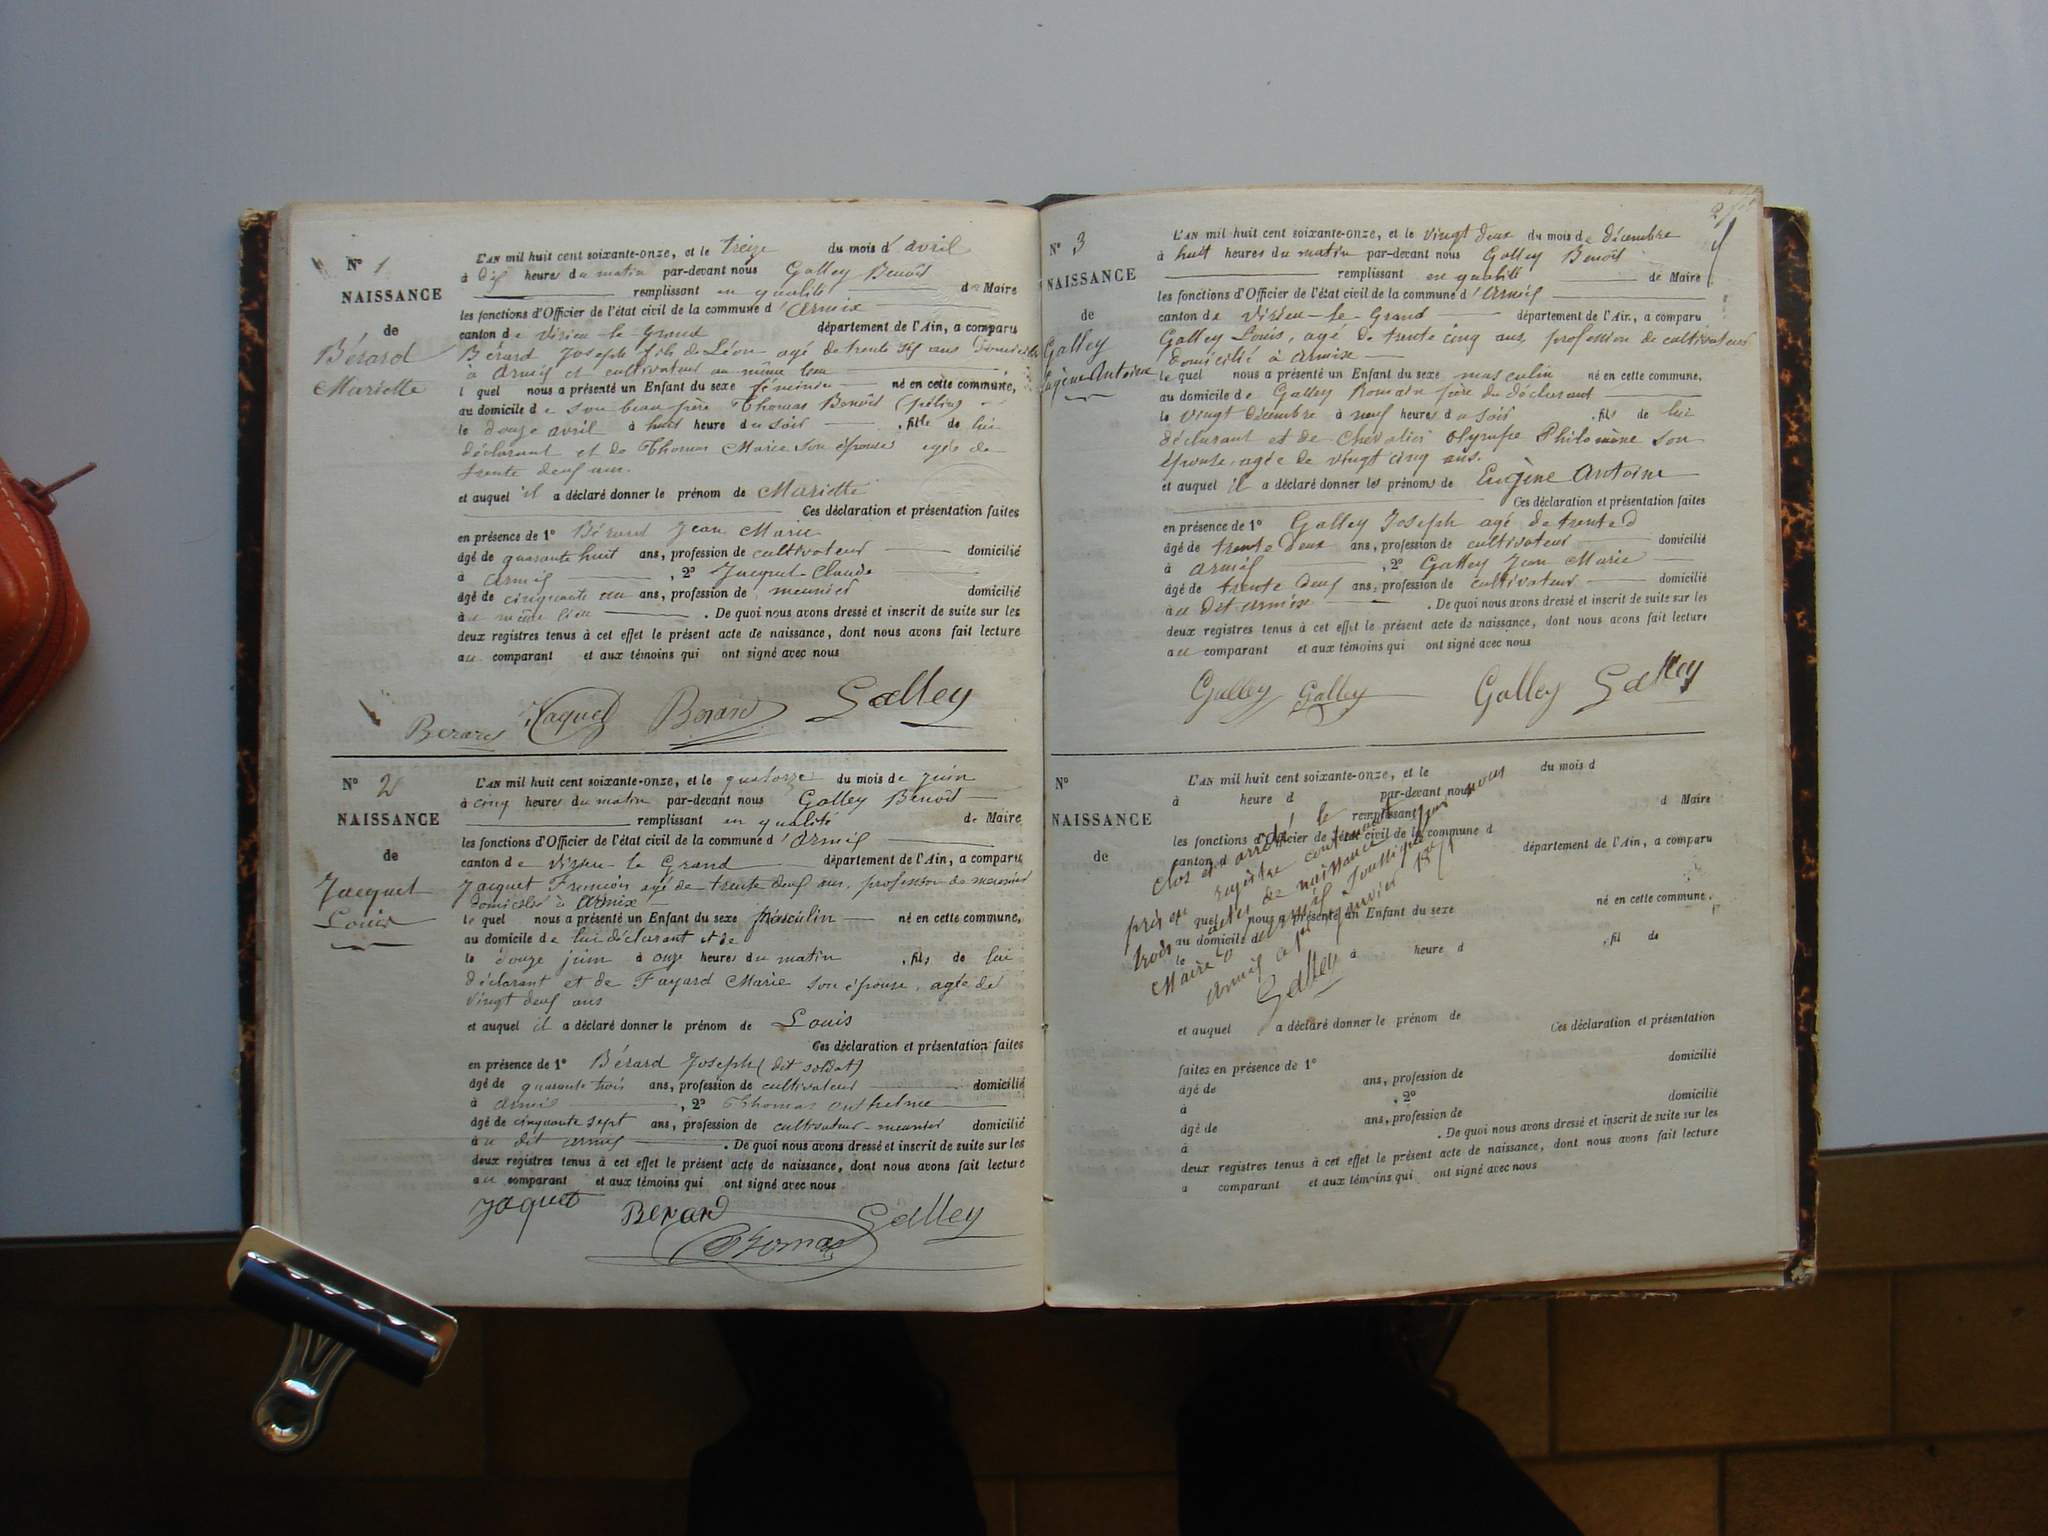 N° 1
NAISSANCE
de
Bérard
Mariette
L'AN mil huit cent soixante-onze, et le treize du mois d'avril
à dix heures du matin par-devant nous Galley Benoît
remplissant en qualité de Maire
les fonctions d'Officier de l'état civil de la commune d'Armix
canton de Virieu-le-Grand département de l'Ain, a comparu
Bérard Joseph fils de Léon agé de trente six ans domicilié
à Armix et cultivateur au même lieu
lequel nous a présenté un Enfant du sexe féminin né en cette commune,
au domicile de son beau père Thomas Benoît
le douze avril à huit heure du soir , fille de lui
déclarant et de Thomas Marie son épouse agée de
trente deux ans.
et auquel il a déclaré donner le prénom de Mariette
Ces déclaration et présentation faites
en présence de 1° Bérard Jean Marie
âgé de quarante huit ans, profession de cultivateur domicilié
à Armix , 2° Jacquet Claude
âgé de cinquante un ans, profession de meunier domicilié
au même lieu . De quoi nous avons dressé et inscrit de suite sur les
deux registres tenus à cet effet le présent acte de naissance, dont nous avons fait lecture
au comparant et aux témoins qui ont signé avec nous
Berard Jaquet Berard Galley
N° 2
NAISSANCE
de
Jacquet
Louis
L'AN mil huit cent soixante-onze, et le quatorze du mois de juin
à cinq heures du matin par-devant nous Galley Benoît
remplissant en qualité de Maire
les fonctions d'Officier de l'état civil de la commune d'Armix
canton de Virieu-le-Grand département de l'Ain, a comparu
Jacquet François agé de trente deux ans, profession de meunier
domicilié à Armix
lequel nous a présenté un Enfant du sexe masculin né en cette commune,
au domicile de lui déclarant et de
le douze juin à onze heures du matin , fils de lui
déclarant et de Fayard Marie son épouse, agée de
vingt deux ans
et auquel il a déclaré donner le prénom de Louis
Ces déclaration et présentation faites
en présence de 1° Bérard Joseph (dit soldat)
âgé de quarante trois ans, profession de cultivateur domicilié
à Armix , 2° Thomas Anthelme
âgé de cinquante sept ans, profession de cultivateur-meunier domicilié
au dit Armix . De quoi nous avons dressé et inscrit de suite sur les
deux registres tenus à cet effet le présent acte de naissance, dont nous avons fait lecture
au comparant et aux témoins qui ont signé avec nous
Jaquet Berard Galley
Thomas
N° 3
NAISSANCE
de
Galley
Eugène Antoine
L'AN mil huit cent soixante-onze, et le vingt deux du mois de décembre
à huit heures du matin par-devant nous Galley Benoît
remplissant en qualité de Maire
les fonctions d'Officier de l'état civil de la commune d'Armix
canton de Virieu-le-Grand département de l'Ain, a comparu
Galley Louis, agé de trente cinq ans, profession de cultivateur
domicilié à Armix
lequel nous a présenté un Enfant du sexe masculin né en cette commune,
au domicile de Galley Romain frère du déclarant
le vingt décembre à neuf heures du soir , fils de lui
déclarant et de Chevalier Olympe Philomène son
épouse, agée de vingt cinq ans.
et auquel il a déclaré donner les prénoms de Eugène Antoine
Ces déclaration et présentation faites
en présence de 1° Galley Joseph agé de trente d
âgé de trente deux ans, profession de cultivateur domicilié
à Armix , 2° Galley Jean Marie
âgé de trente deux ans, profession de cultivateur domicilié
au dit Armix . De quoi nous avons dressé et inscrit de suite sur les
deux registres tenus à cet effet le présent acte de naissance, dont nous avons fait lecture
au comparant et aux témoins qui ont signé avec nous
Galley Galley Galley Galley
N°
NAISSANCE
de
L'AN mil huit cent soixante-onze, et le du mois d
à heure d par-devant nous
remplissant d Maire
les fonctions d'Officier de l'état civil de la commune d
canton d département de l'Ain, a comparu
lequel nous a présenté un Enfant du sexe né en cette commune,
au domicile d
le à heure d , fil de
et auquel a déclaré donner le prénom de
Ces déclaration et présentation
faites en présence de 1°
âgé de ans, profession de domicilié
à , 2°
âgé de ans, profession de domicilié
à . De quoi nous avons dressé et inscrit de suite sur les
deux registres tenus à cet effet le présent acte de naissance, dont nous avons fait lecture
a comparant et aux témoins qui ont signé avec nous
Clos et arrêté le
registre contenant
trois actes de naissance par nous
Maire d'Armix soussigné
Armix le 1er janvier
Galley